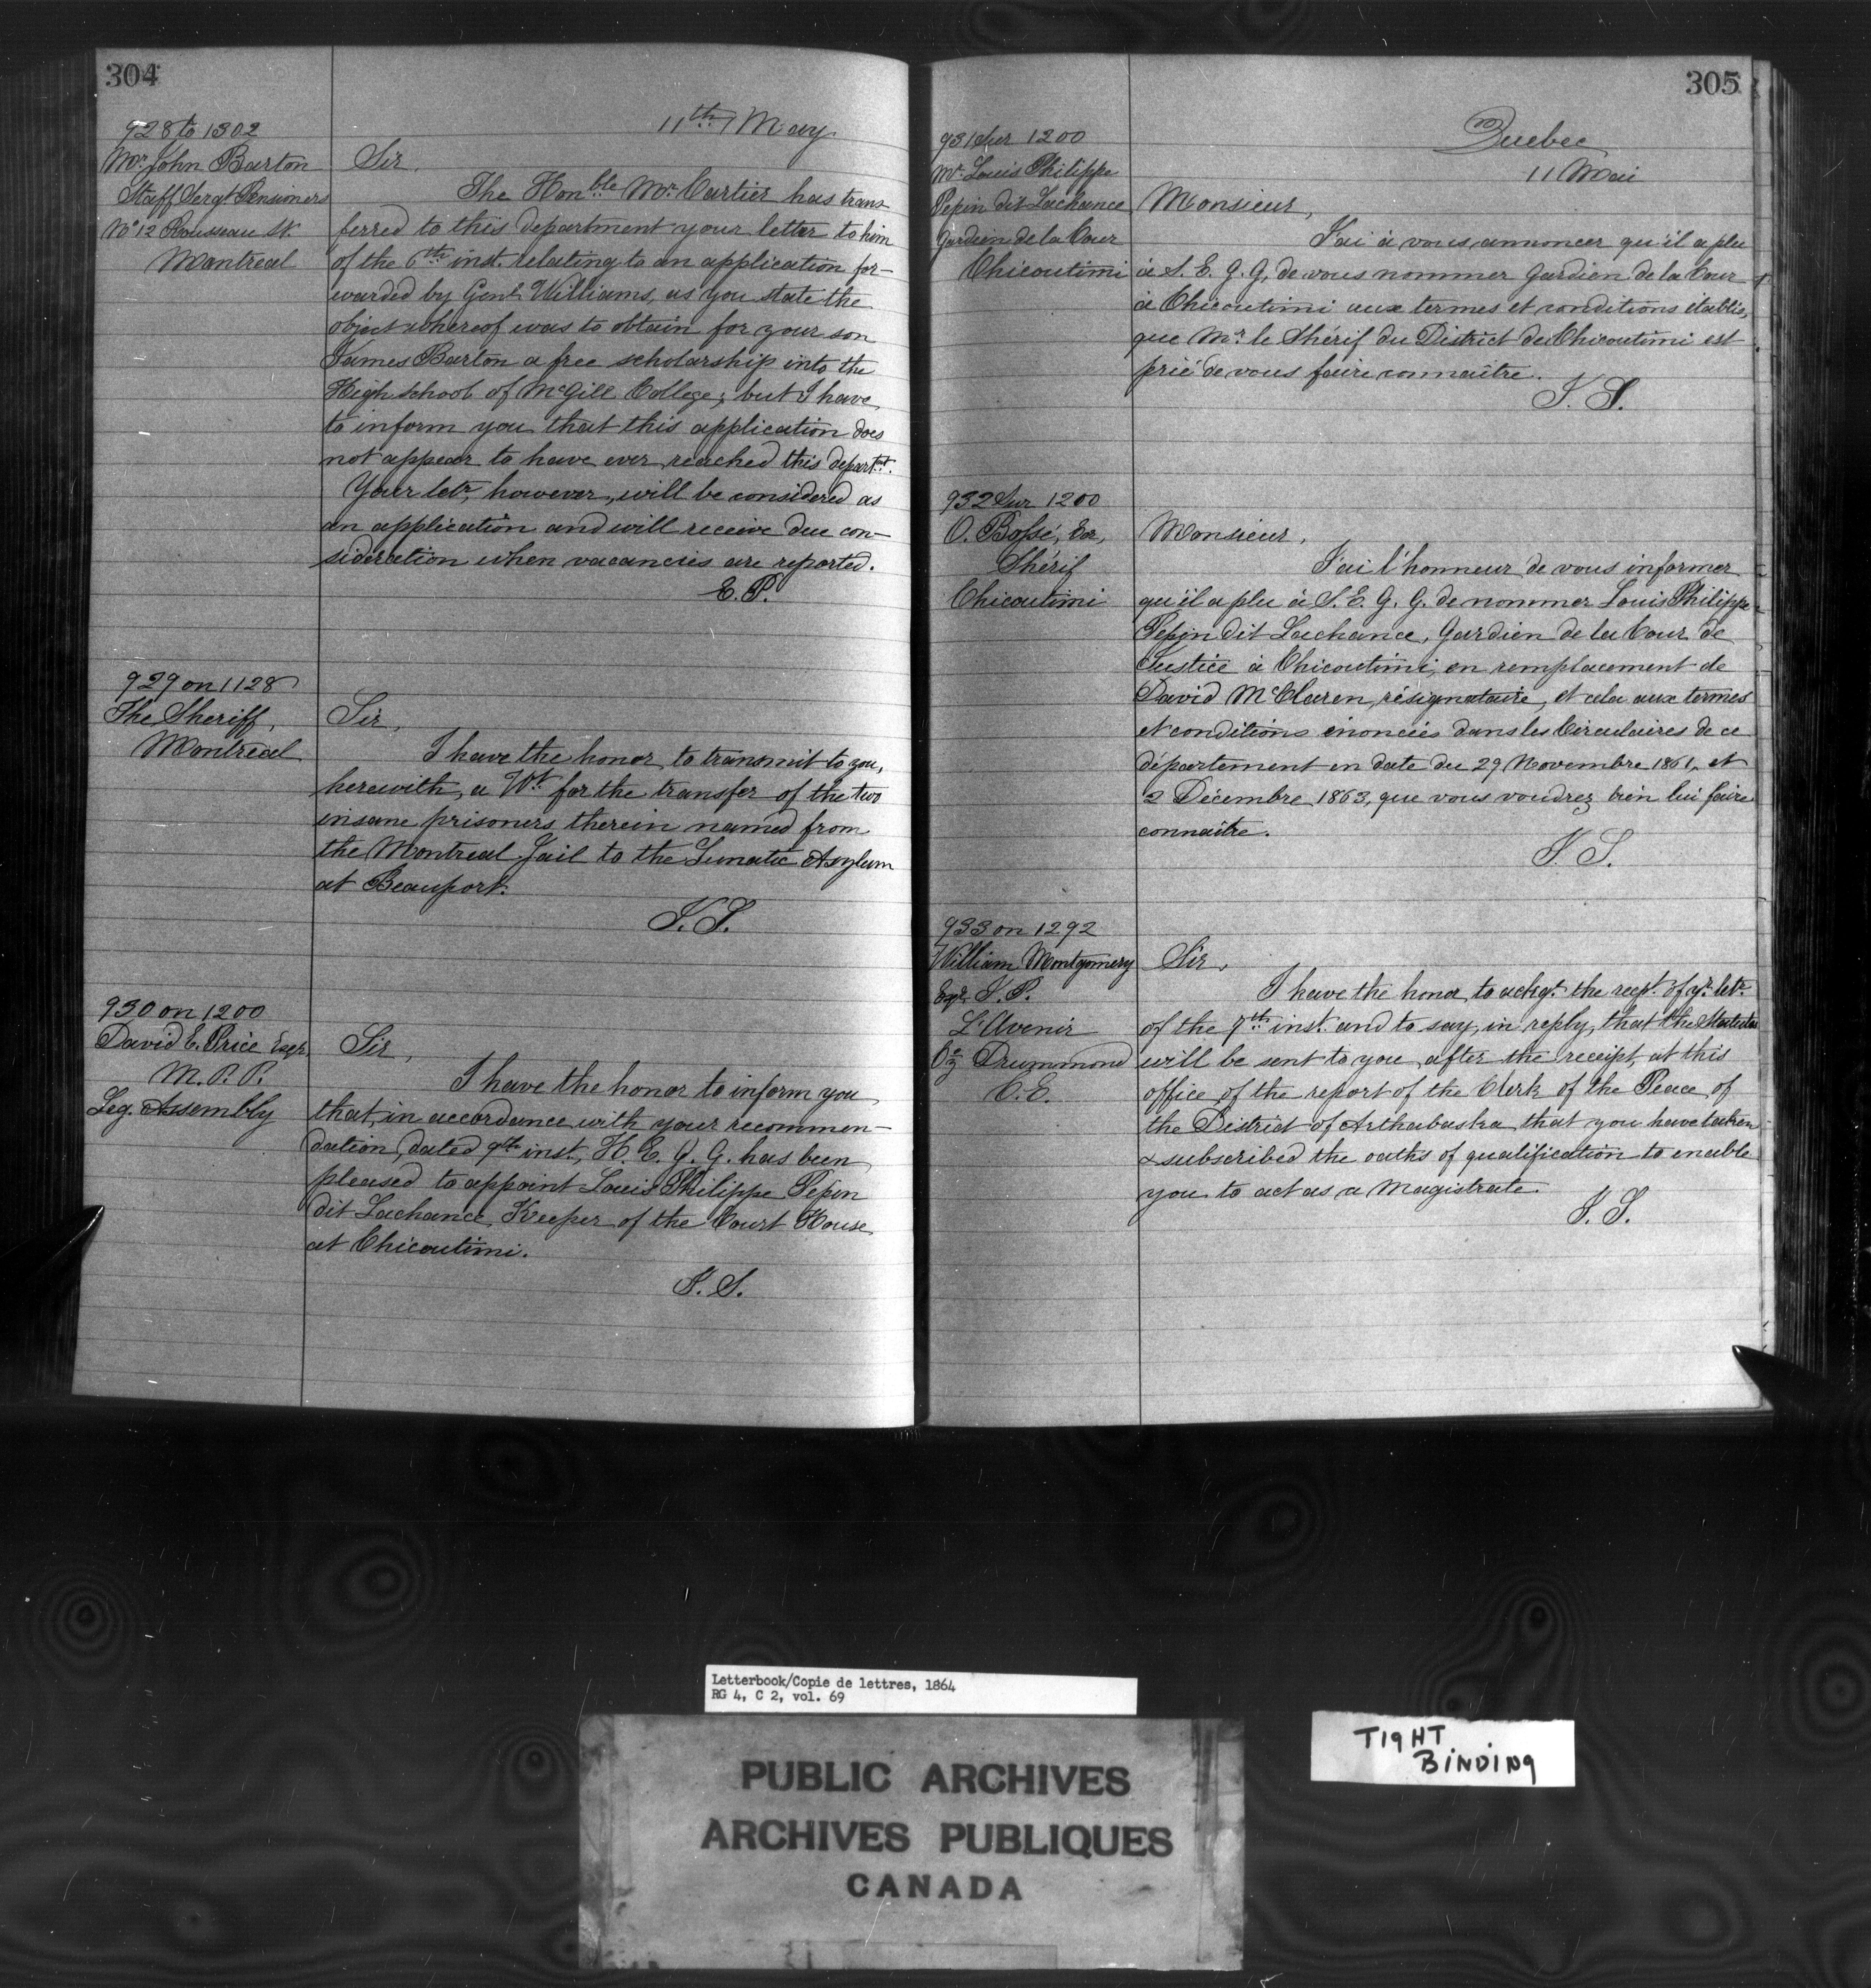 304
11th May
928 to 1302
Mr. John Barton
Staff Sergt Pensioners
No 12 Rousseau St.
Montreal
Sir,
The Honble Mr. Cartier has trans
ferred to this department your letter to him
of the 6th inst. relating to an application for-
warded by Genl Williams, as you state the
object whereof was to obtain for your son
James Barton a free scholarship into the
High school of McGill College; but I have
to inform you that this application does
not appear to have ever reached this departt.
Your letr, however, will be considered as
an application and will receive due con-
sideration when vacancies are reported.
E. P.
929 on 1128
The Sheriff,
Montreal
Sir,
I have the honor to transmit to you,
herewith, a Wt for the transfer of the two
insane prisoners therein named from
the Montreal Jail to the Lunatic Asylum
at Beauport.
930 on 1200
David E. Price Esqr.
M. P. P.
Leg. Assembly
Sir,
I have the honor to inform you
that, in accordance with your recommen-
dation, dated 9th inst, H. E. G. G. has been
pleased to appoint Louis Philippe Pepin
dit Lachance, Keeper of the Court House
at Chicoutimi.
305
Quebec
11 Mai
931 Sur 1200
Mr. Louis Philippe
Pepin dit Lachance
Gardien de la Cour
Chicoutimi
Monsieur,
J'ai à vous annoncer qu'il a plu
à S. E. G. G. de vous nommer Gardien de la Cour
à Chicoutimi aux termes et conditions établis,
que Mr. le Shérif du District de Chicoutimi est
prié de vous faire connaître.
932 Sur 1200
O. Bossé, Ecr,
Shérif
Chicoutimi
Monsieur,
J'ai l'honneur de vous informer
qu'il a plu à S. E. G. G. de nommer Louis Philippe
Pepin dit Lachance, Gardien de la Cour de
Justice à Chicoutimi, en remplacement de
David McClaren, résignataire, et cela aux termes
et conditions énoncées dans les Circulaires de ce
département en date du 29 Novembre 1861, et
2 Décembre 1863, que vous voudrez bien lui faire
connaître.
933 on 1292
William Montgomery
Esqr. J. P.
L'Avenir
Drummond
C. E.
Sir,
I have the honor to ackgt. the recpt. of yr. letr.
of the 7th inst. and to say, in reply, that the
will be sent to you, after the receipt, at this
office, of the report of the Clerk of the Peace of
the District of Arthabaska, that you have taken
& subscribed the oaths of qualification to enable
you to act as a Magistrate.
Letterbook/Copie de lettres, 1864
RG 4, C 2, vol. 69
TIGHT
BINDING
PUBLIC ARCHIVES
ARCHIVES PUBLIQUES
CANADA